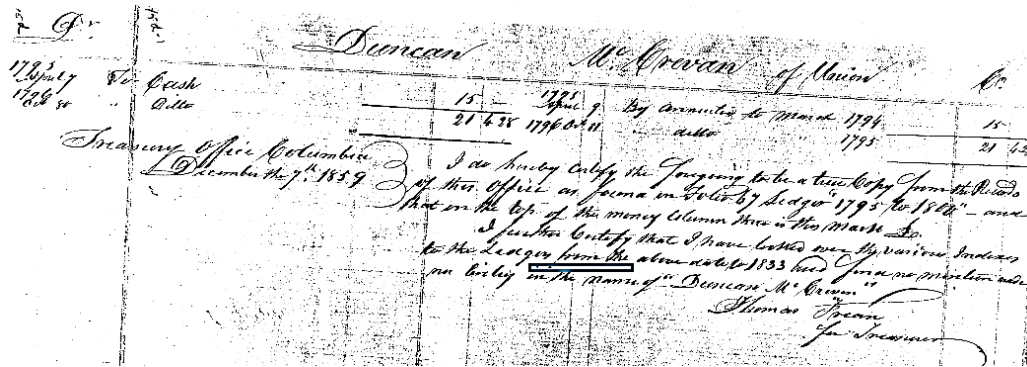 Dr Duncan McCrevan of Union Cr
1795 April 7 To Cash 15 — 1795 April 9 By annuity to March 1794 15
1796 " Ditto 21 4 1796 Oct 11 " ditto " 1795 21 4
Treasury Office Columbia
December the 7th 1859
I do hereby certify the foregoing to be a true Copy from the Records
of this Office as found in Folio 67 Ledger "1795 to 1800" — and
that on the top of the money Column there is this mark
I further Certify that I have looked over the various Indexes
to the Ledgers from the above date to 1833 and find no mention made
no entry in the name of "Duncan McCreven"
Thomas Frean
for Treasurer